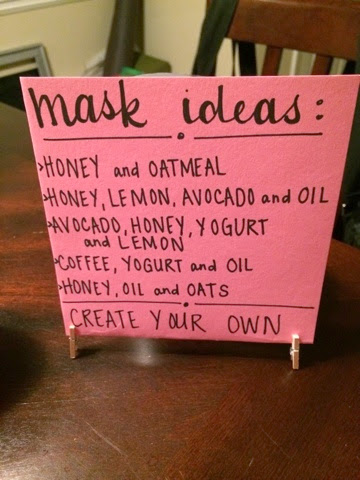 mask ideas:
>HONEY and OATMEAL
>HONEY, LEMON, AVOCADO and OIL
>AVOCADO, HONEY, YOGURT
and LEMON
>COFFEE, YOGURT and OIL
>HONEY, OIL and OATS
CREATE YOUR OWN